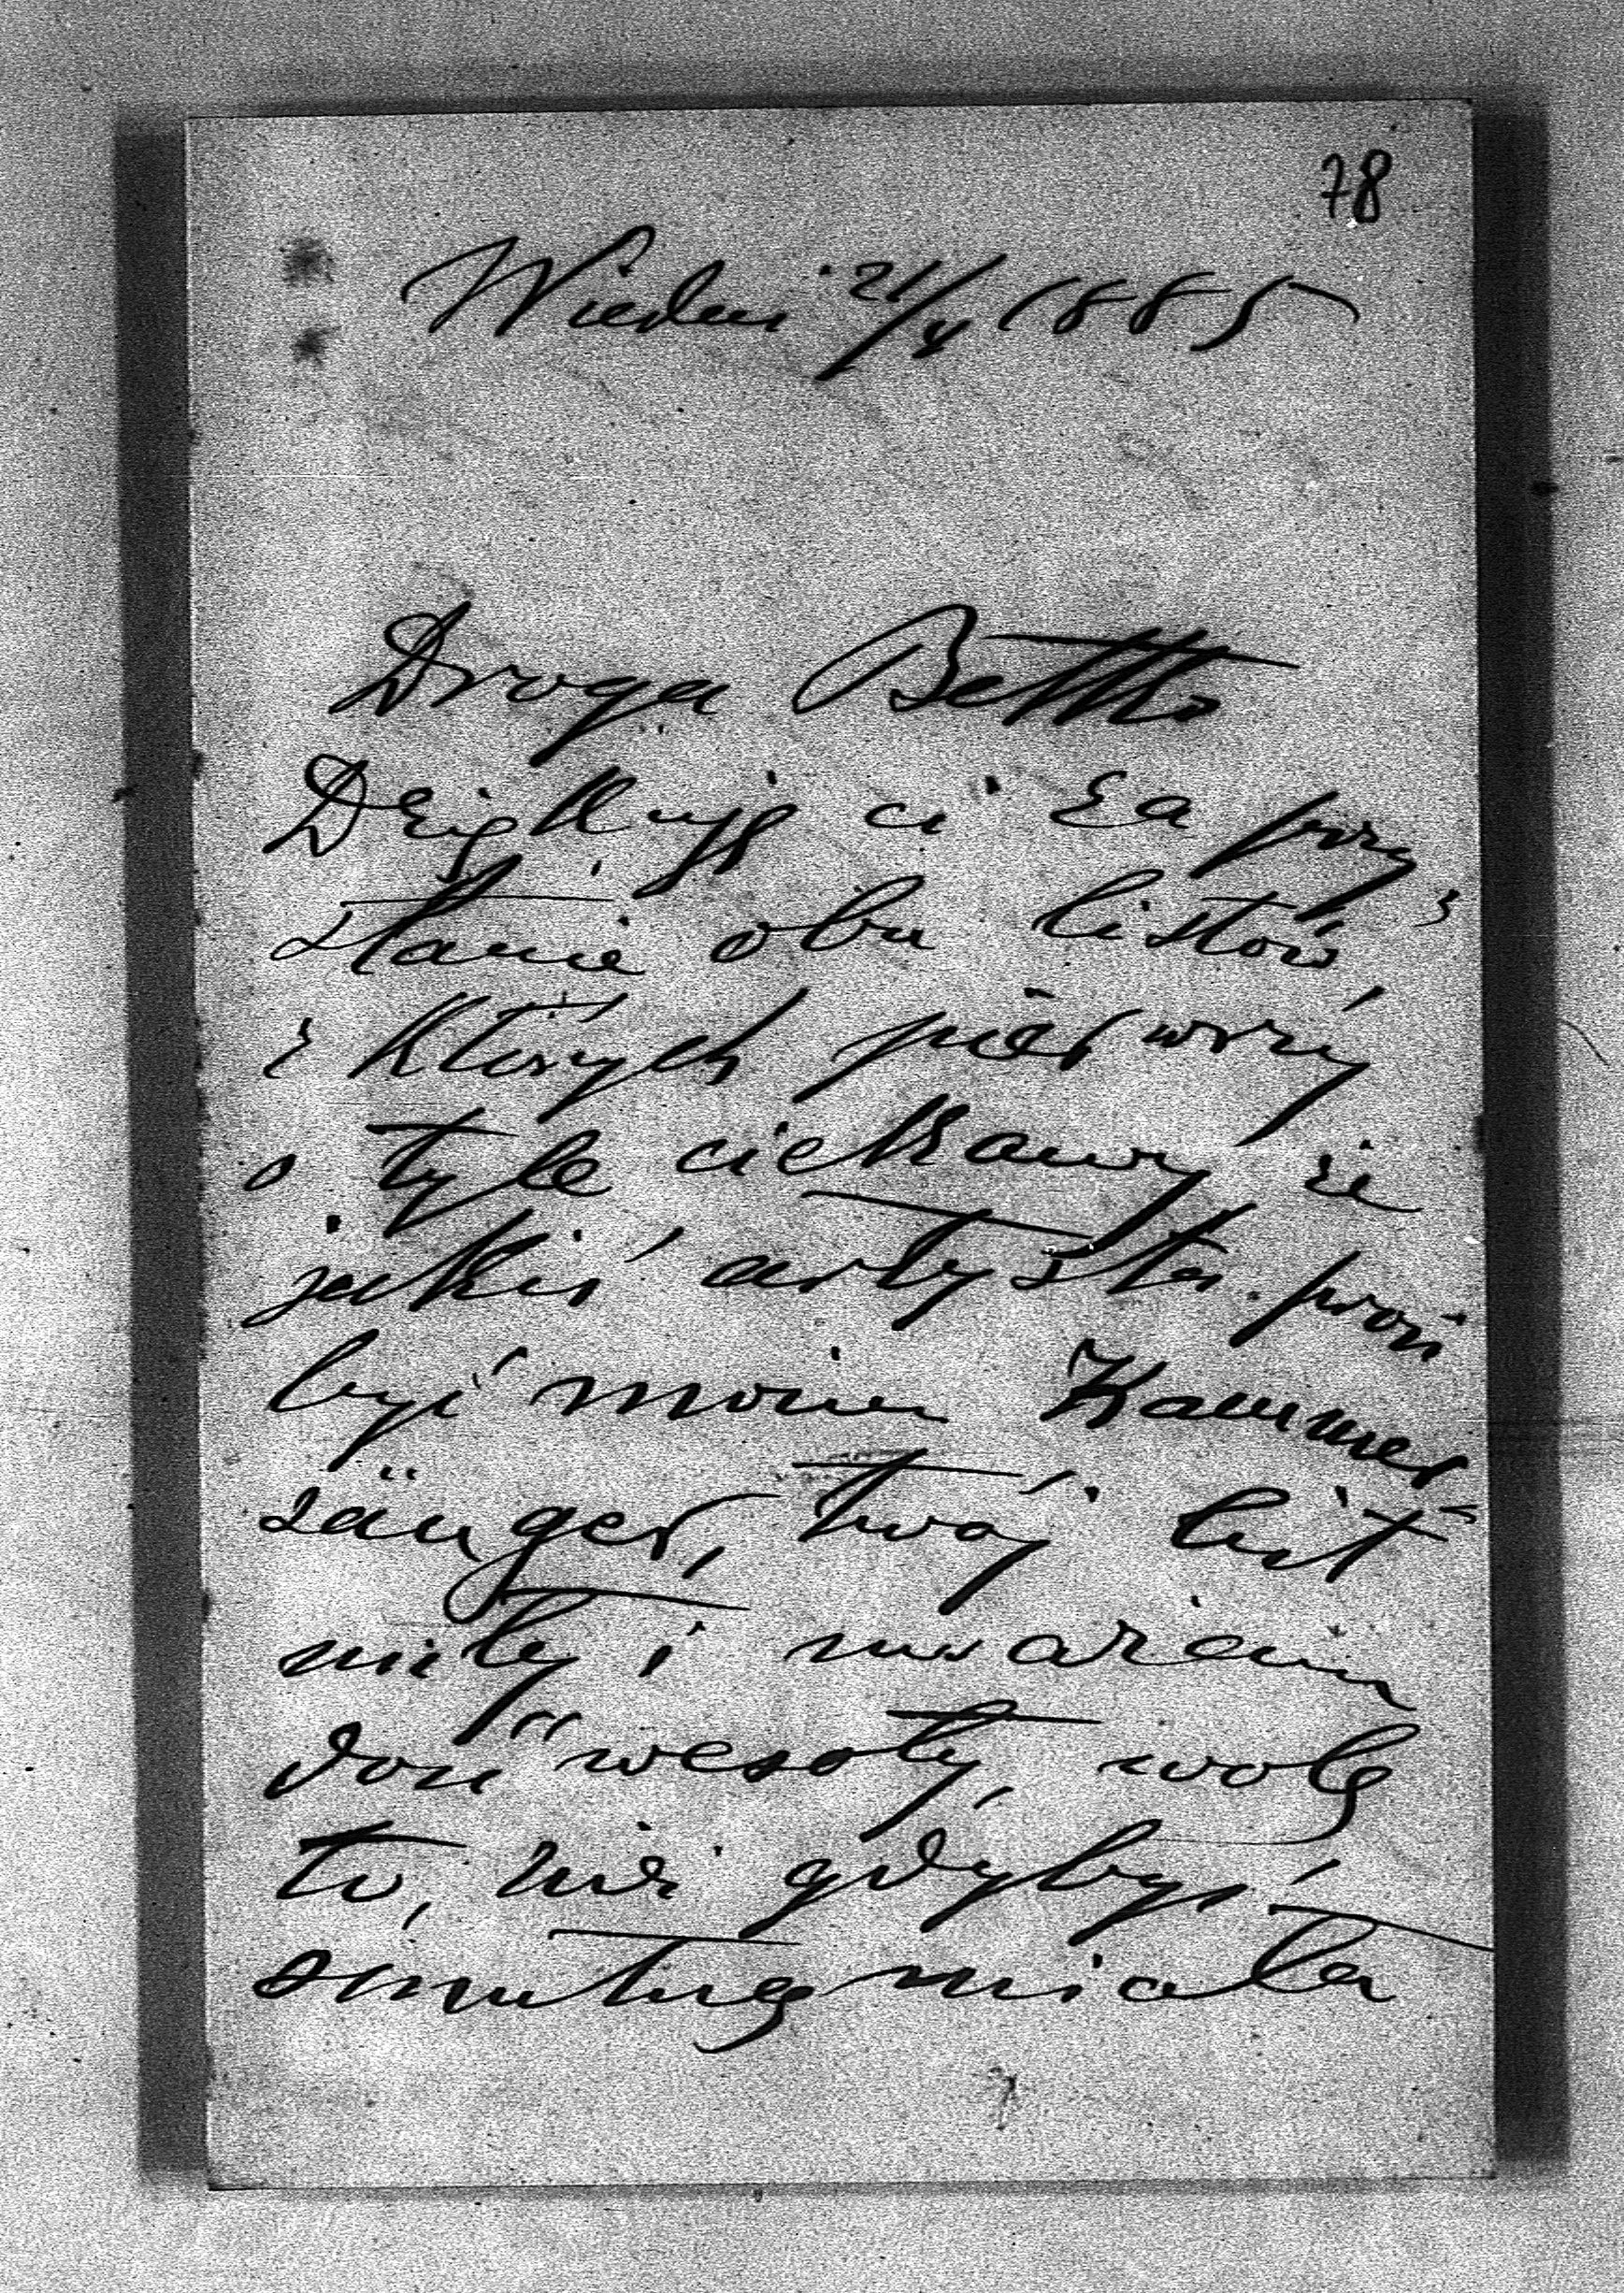 78
Wiedeń 21/4 1885
Droga Bettko
Dziękuję ci za przy-
słanie obu listów
z których pierwszy
o tyle ciekawy że
jakiś artysta prosi
być moim Kammer
sänger, twój list
miły i uważam
dość wesoły, wolę
to, niż gdybyś
smutną miała